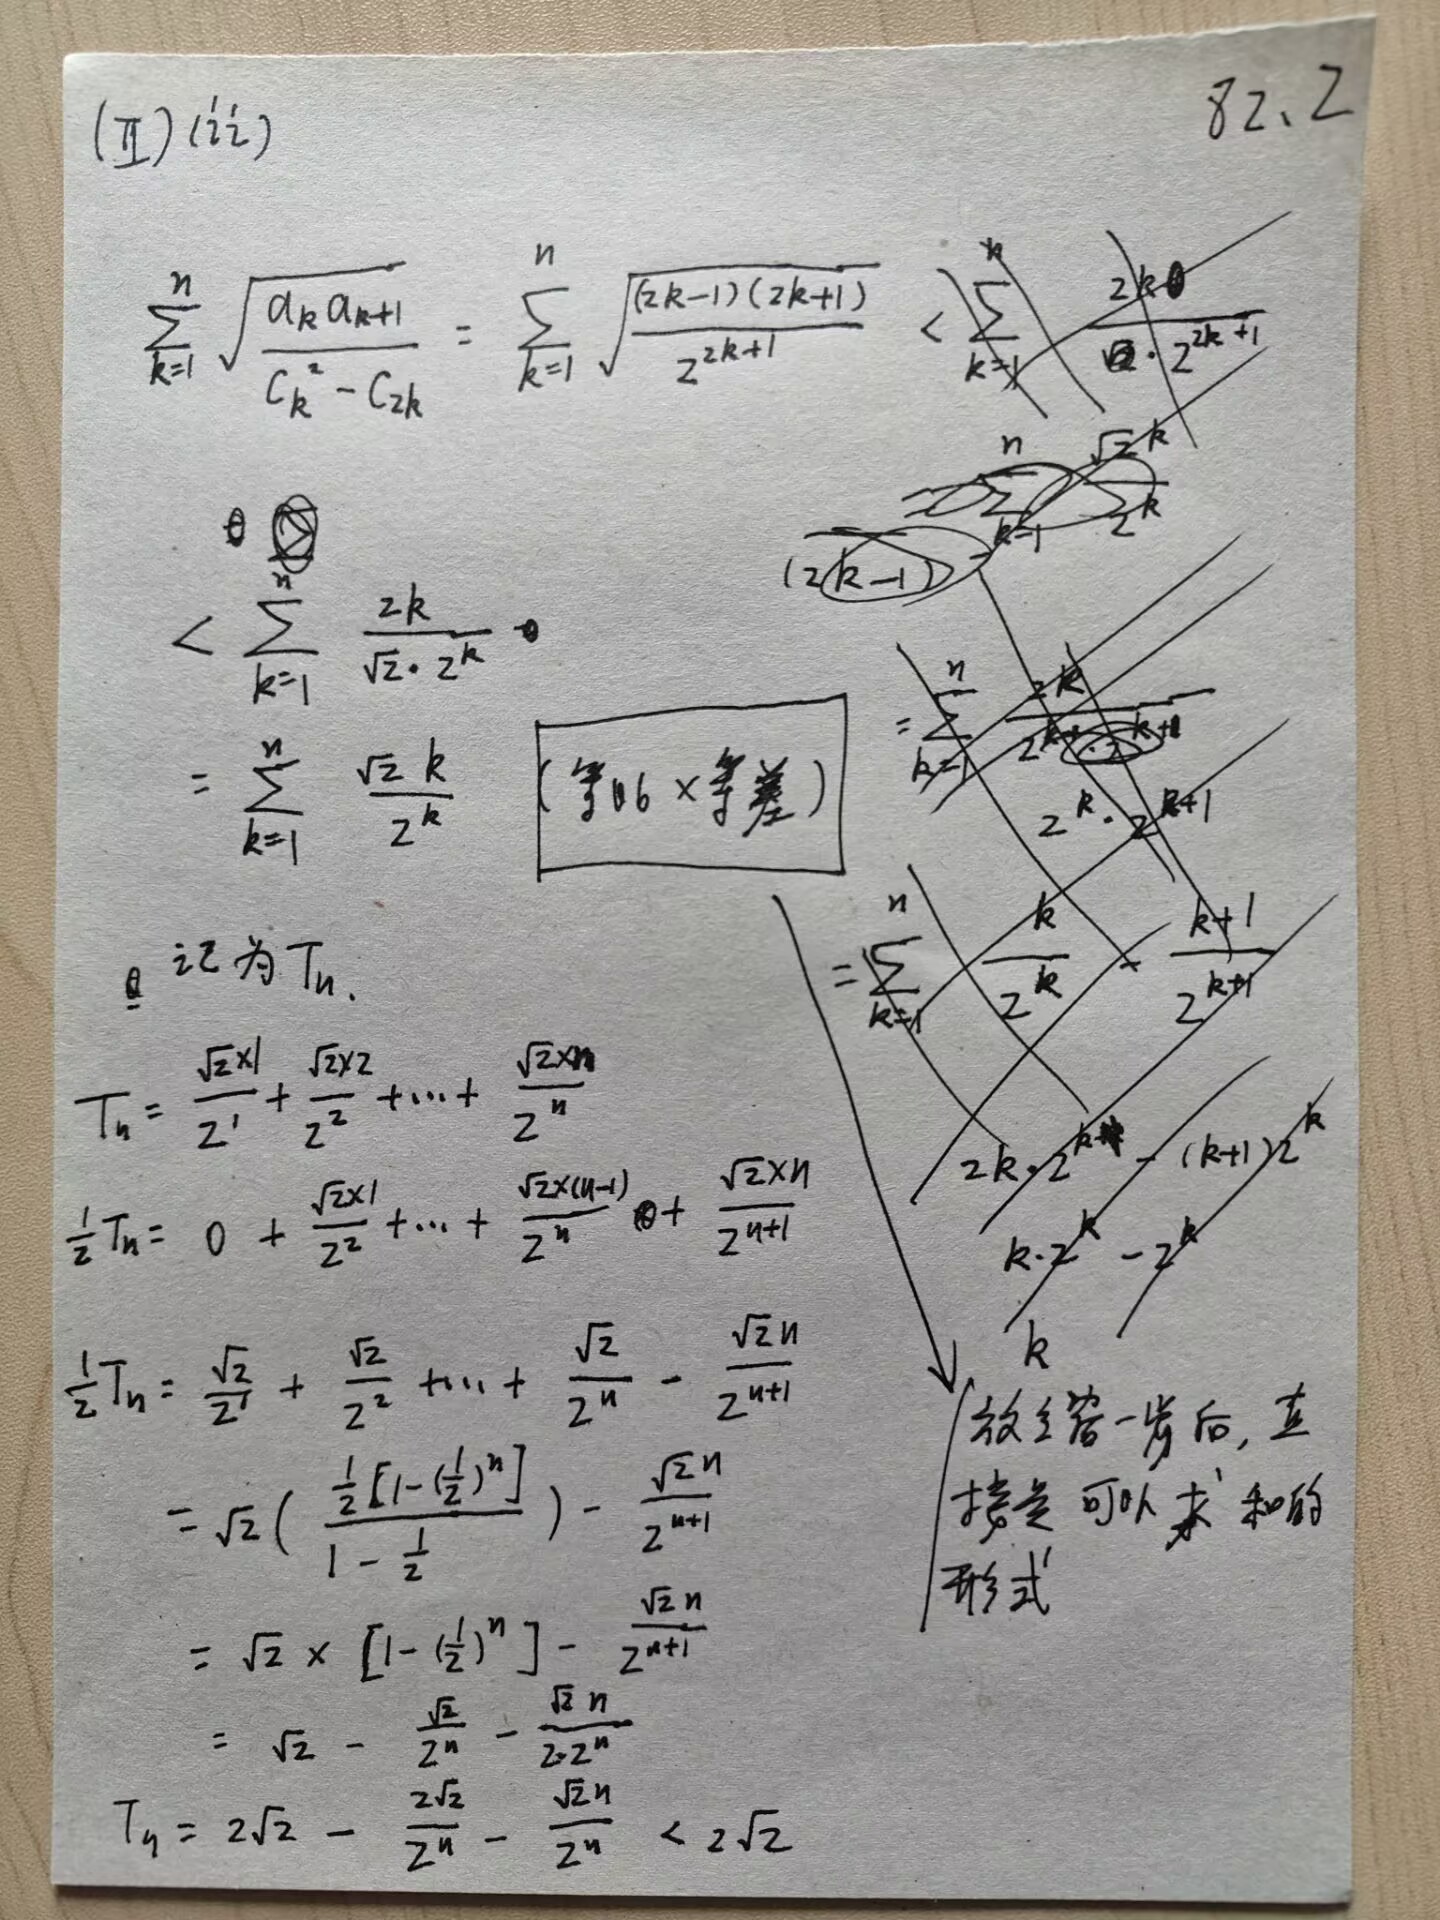 (Ⅱ)(ii)
82.2
$\sum_{k=1}^{n} \sqrt{\frac{a_k a_{k+1}}{c_k^2 - c_{2k}}} = \sum_{k=1}^{n} \sqrt{\frac{(2k-1)(2k+1)}{2^{2k+1}}} <$
$< \sum_{k=1}^{n} \frac{2k}{\sqrt{2} \cdot 2^k}$
$= \sum_{k=1}^{n} \frac{\sqrt{2} k}{2^k}$ (等比×等差)
记为 $T_n$.
$T_n = \frac{\sqrt{2} \times 1}{2^1} + \frac{\sqrt{2} \times 2}{2^2} + \cdots + \frac{\sqrt{2} \times n}{2^n}$
$\frac{1}{2} T_n = 0 + \frac{\sqrt{2} \times 1}{2^2} + \cdots + \frac{\sqrt{2} \times (n-1)}{2^n} + \frac{\sqrt{2} \times n}{2^{n+1}}$
$\frac{1}{2} T_n = \frac{\sqrt{2}}{2^1} + \frac{\sqrt{2}}{2^2} + \cdots + \frac{\sqrt{2}}{2^n} - \frac{\sqrt{2} n}{2^{n+1}}$
$= \sqrt{2} ( \frac{\frac{1}{2}[1-(\frac{1}{2})^n]}{1-\frac{1}{2}} ) - \frac{\sqrt{2} n}{2^{n+1}}$
$= \sqrt{2} \times [1-(\frac{1}{2})^n] - \frac{\sqrt{2} n}{2^{n+1}}$
$= \sqrt{2} - \frac{\sqrt{2}}{2^n} - \frac{\sqrt{2} n}{2 \cdot 2^n}$
$T_n = 2\sqrt{2} - \frac{2\sqrt{2}}{2^n} - \frac{\sqrt{2} n}{2^n} < 2\sqrt{2}$
(2k-1)
$2^k \cdot 2^{k+1}$
$= \sum_{k=1}^{n} \frac{k}{2^k} - \frac{k+1}{2^{k+1}}$
$k \cdot 2^k - 2^k$
k
放缩一步后,直
接是可以求和的
形式